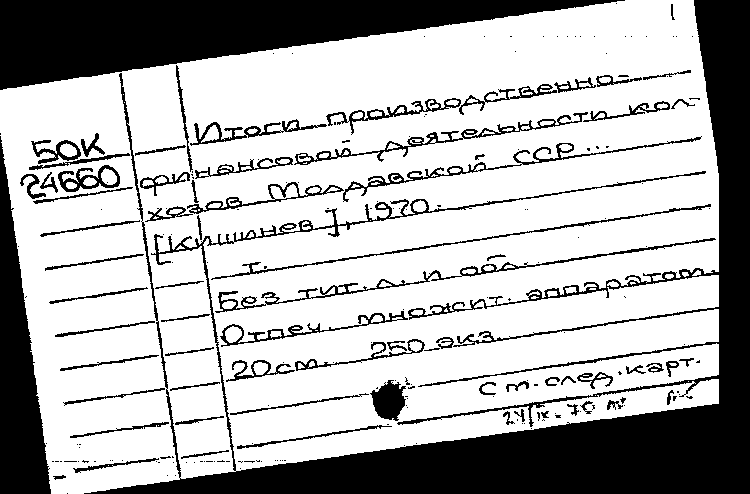 1
Итоги производственно-
50К
финансовой деятельности кол-
24660
хозов Молдавской ССР...
[Кишинев], 1970.
т.
Без тит. л. и обл.
Отпеч. множит. аппаратом.
20 см. 250 экз.
См. след. карт.
24/IX-70